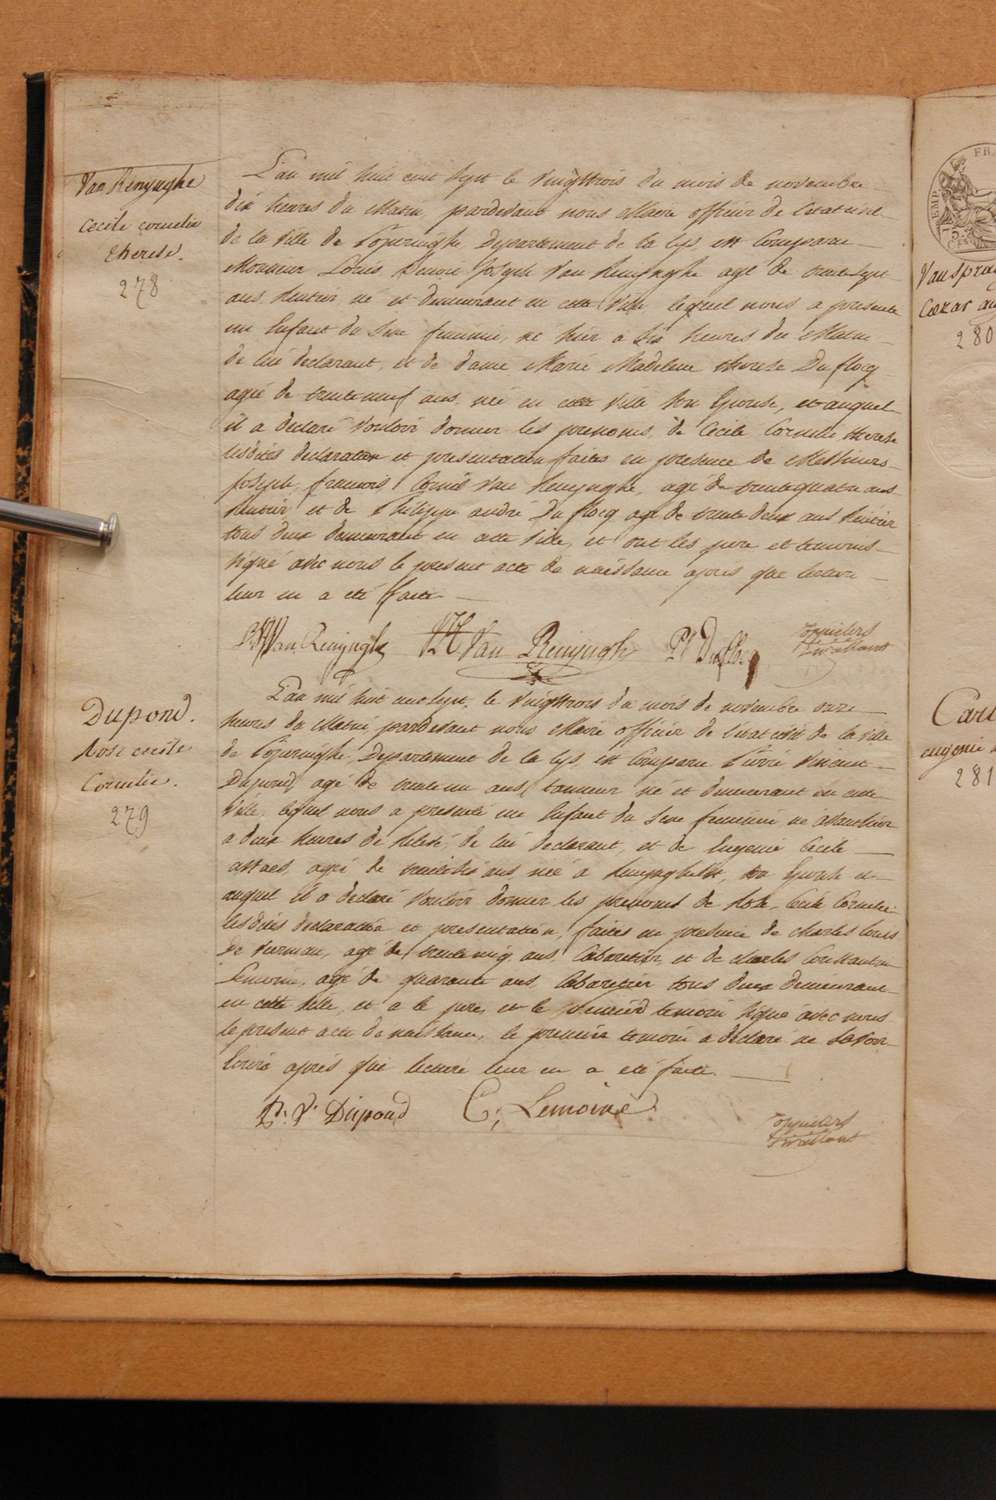 Van Renynghe
Cecile Cornelie
therese.
278
L'an mil huit cent sept le vingttrois du mois de novembre
dix heures du matin, pardevant nous Maire officier de l'etat civil
de la ville de Poperinghe Departement de la Lys, est Comparu
Monsieur Louis Joseph Van Renynghe agé de trente sept
ans, Rentier né et demeurant en cette ville lequel nous a presenté
un Enfant du Sexe feminin, né hier a Six heures du Matin
de lui declarant, et de dame Marie Madeleine therese Duflocq
agée de trente neuf ans, née en cette ville Son Epouse, et auquel
il a declaré Vouloir donner les prenoms de Cecile Cornelie therese
lesdites declaration et presentation faites en presence de Messieurs
Joseph francois Cornil Van Renynghe, agé de trente quatre ans
Rentier et de Philippe andré Duflocq agé de trente deux ans Rentier
tous deux demeurant en cette Ville, et ont les pere et temoins
Signé avec nous le present acte de naissance apres que lecture
leur en a été faite
Van Renynghe Van Renynghe Duflocq
Dupond.
Rose cecile
Cornelie.
279
L'an mil huit cent sept, le vingttrois du mois de novembre onze
heures du Matin pardevant nous Maire officier de l'etat civil de la ville
de Poperinghe, Departement de la Lys, est Comparu Pierre Vincent
Dupond, agé de trente un ans, tanneur né et demeurant en cette
Ville, lequel nous a presenté un Enfant du Sexe feminin né avanthier
a deux heures de relevé, de lui declarant, et de Eugenie Cecile
agée de trente six ans, née a Renynghelst, Son Epouse et
auquel il a declaré Vouloir donner les prenoms de Rose Cecile Cornelie
lesdites declaration et presentation faites en presence de Charles Louis
agé de trente cinq ans Cabaretier, et de charles Constantin
Lemoine, agé de quarante ans, Cabaretier tous deux demeurant
en cette Ville, et a le pere, et le temoin Signé avec nous
le present acte de naissance, le premier temoin a declaré ne Savoir
Ecrire après que lecture leur en a été faite
P. V. Dupond C; Lemoine
FR
EMP.
Van Spra
Cæzar au
280
Carl
eugenie
281